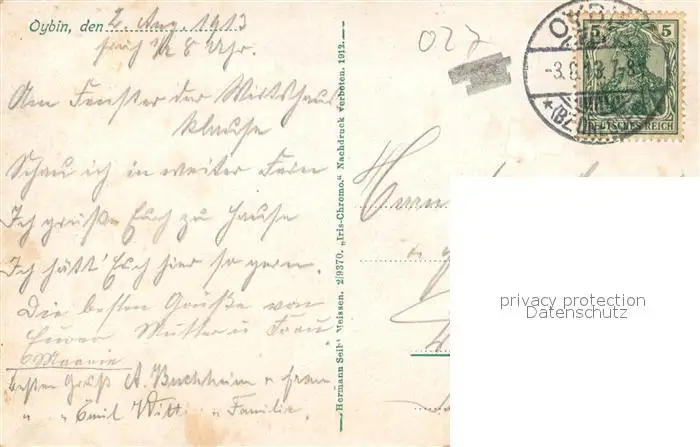 Oybin, den 2. Aug. 1913
früh 1/2 8 Uhr.
Am Fenster der Wirtshaus
klause
Schau ich in weiter Fern
Ich grüße Euch zu Hause
Ich hätt' Euch hier so gern.
Die besten Grüße von
Eurer Mutter u. Frau
Besten Gruß A. Buchheim u. Frau
" " Emil Witt " Familie.
Hermann Seibt Meissen. 2/9370. „Iris-Chromo." Nachdruck verboten. 1912.
027
-3.8.13. 7-8
* (BZ.
5 5
DEUTSCHES REICH
privacy protection
Datenschutz